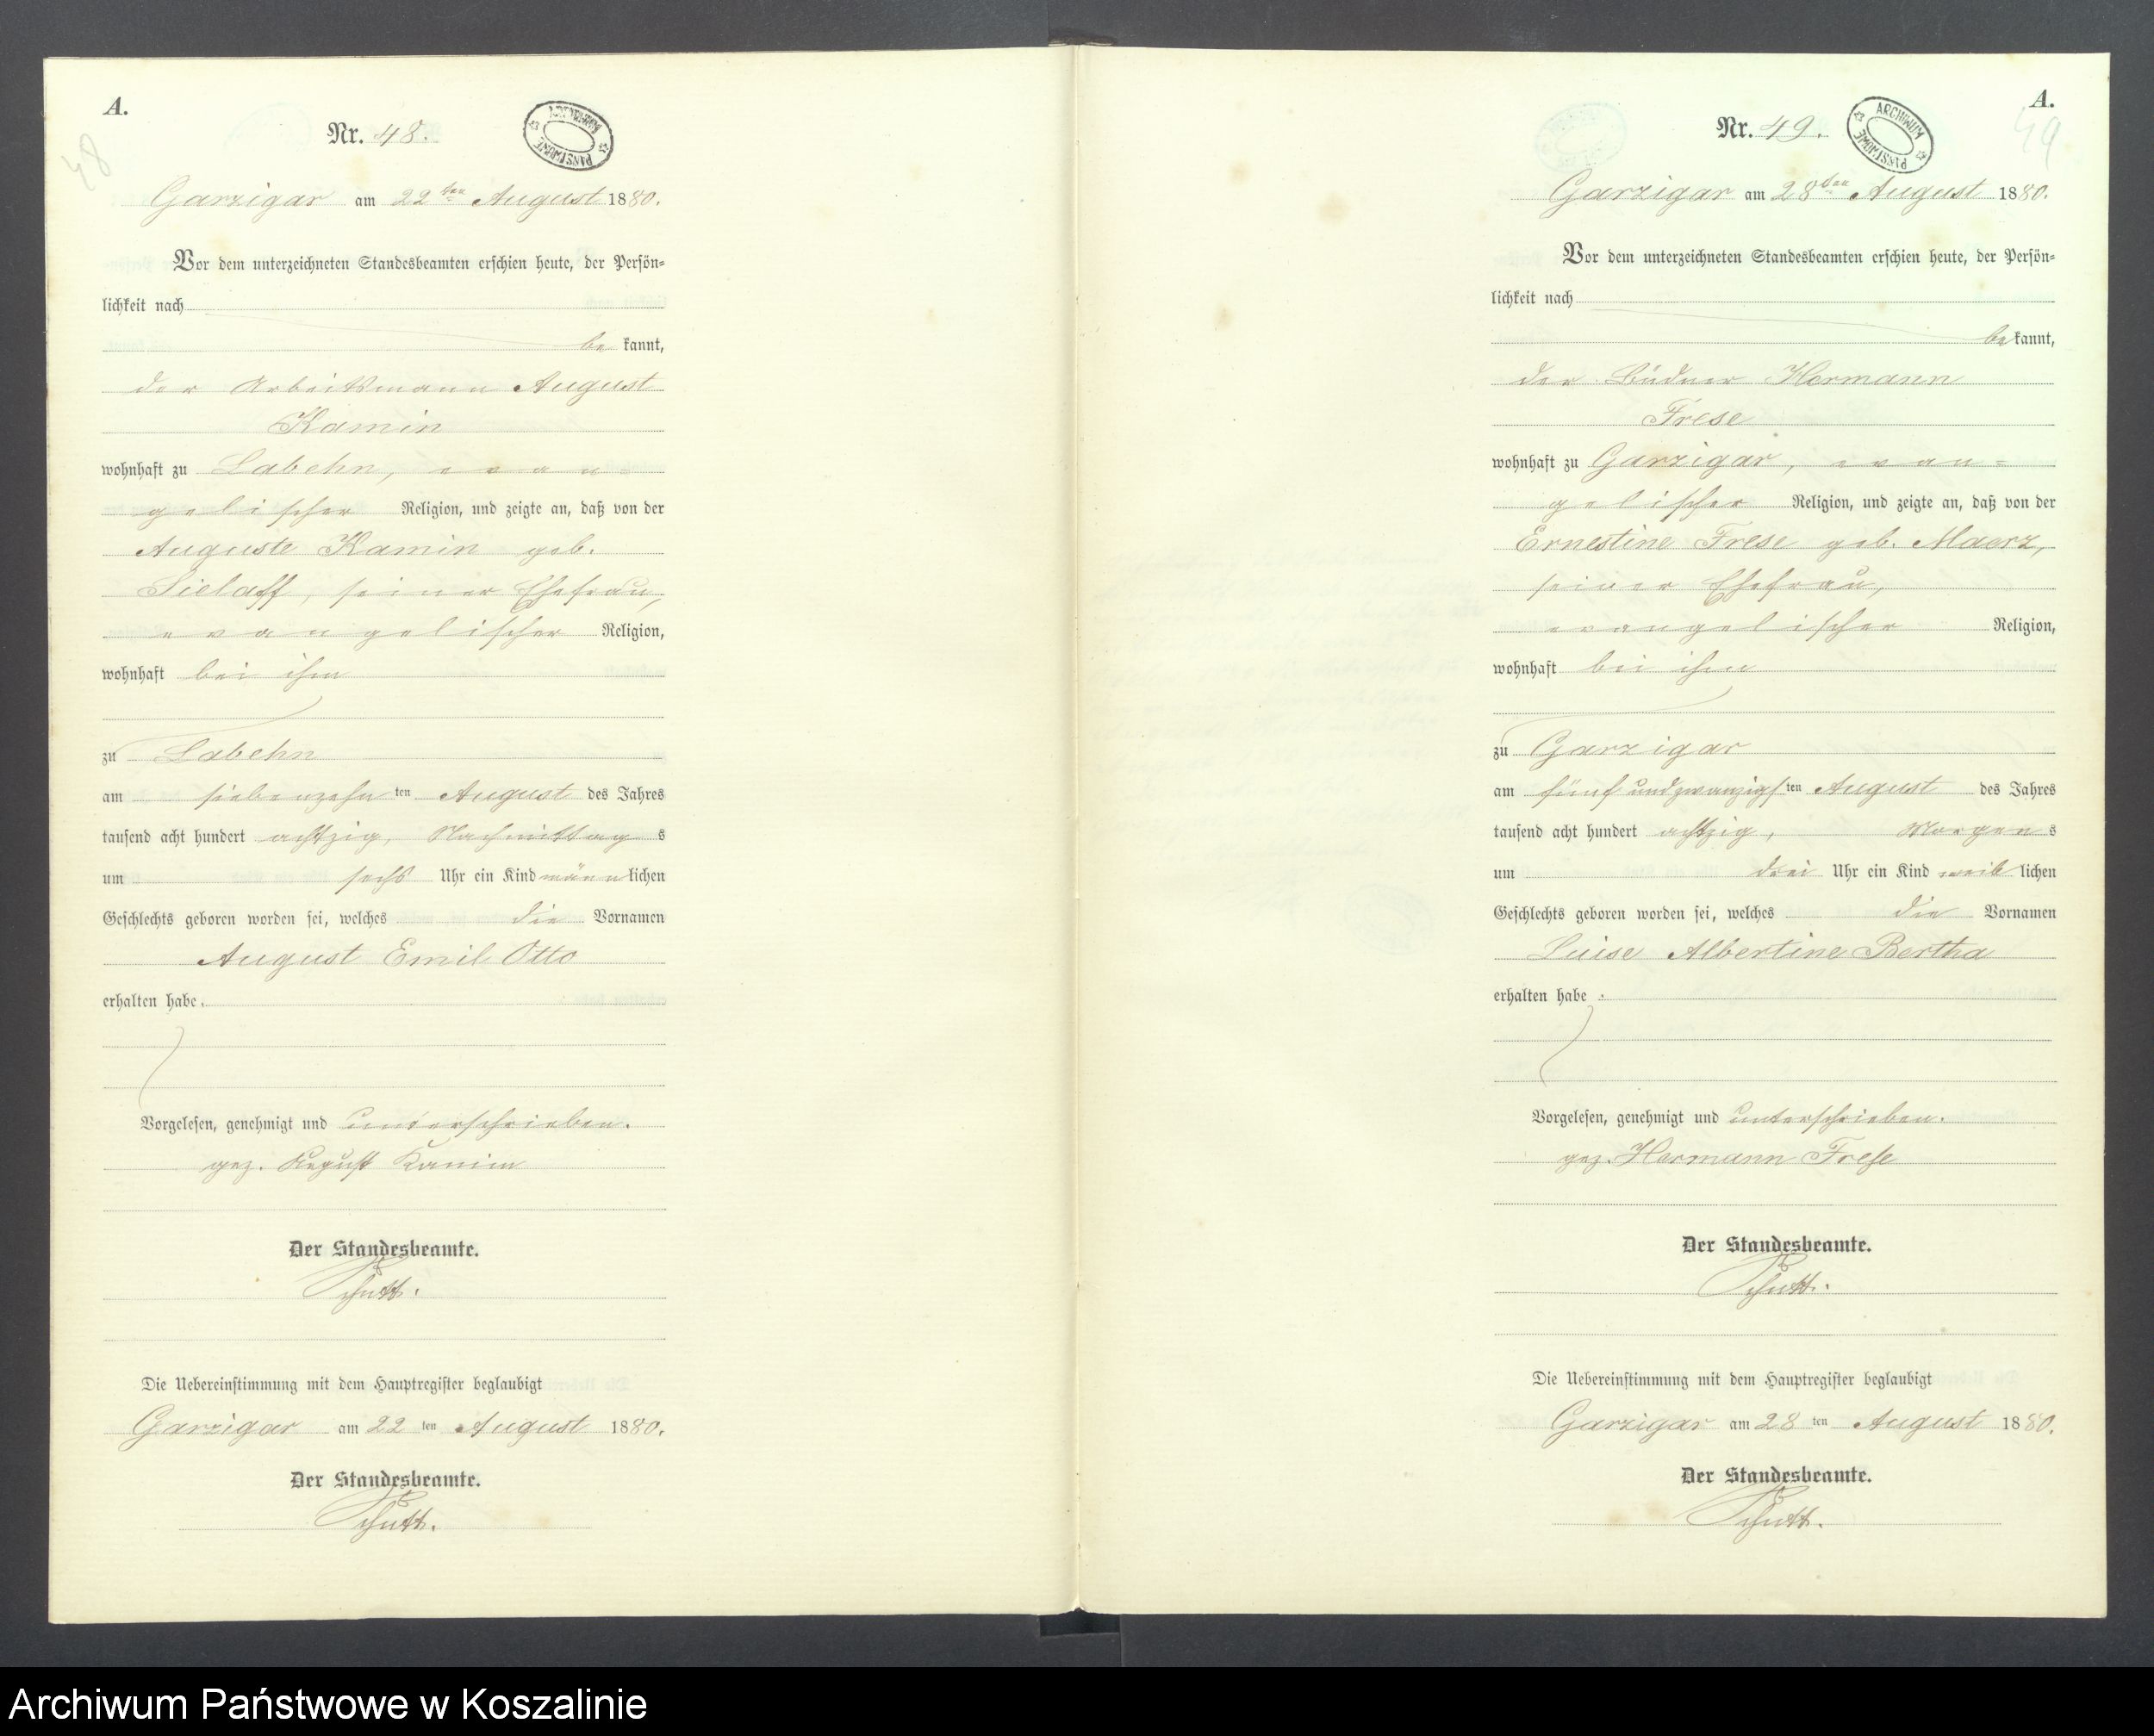 A.
48
Nr. 48.
ARCHIWUM PAŃSTWOWE
Garzigar am 22ten August 1880.
Vor dem unterzeichneten Standesbeamten erschien heute, der Persön=
lichkeit nach
be kannt,
der Arbeitsmann August
Kamin
wohnhaft zu Labehn, evan=
gelischer Religion, und zeigte an, daß von der
Auguste Kamin geb.
Sielaff, seiner Ehefrau,
evangelischer Religion,
wohnhaft bei ihm
zu Labehn
am siebenzehn ten August des Jahres
tausend acht hundert achtzig, Nachmittag s
um sechs Uhr ein Kind männ lichen
Geschlechts geboren worden sei, welches die Vornamen
August Emil Otto
erhalten habe.
Vorgelesen, genehmigt und unterschrieben.
gez. August Kamin
Der Standesbeamte.
Schutt.
Die Uebereinstimmung mit dem Hauptregister beglaubigt
Garzigar am 22 ten August 1880.
Der Standesbeamte.
Schutt.
A.
49
Nr. 49.
ARCHIWUM PAŃSTWOWE
Garzigar am 28ten August 1880.
Vor dem unterzeichneten Standesbeamten erschien heute, der Persön=
lichkeit nach
be kannt,
der Büdner Hermann
Frese
wohnhaft zu Garzigar, evan=
gelischer Religion, und zeigte an, daß von der
Ernestine Frese geb. Maerz,
seiner Ehefrau,
evangelischer Religion,
wohnhaft bei ihm
zu Garzigar
am fünf undzwanzigs ten August des Jahres
tausend acht hundert achtzig, Morgen s
um drei Uhr ein Kind weib lichen
Geschlechts geboren worden sei, welches die Vornamen
Luise Albertine Bertha
erhalten habe.
Vorgelesen, genehmigt und unterschrieben.
gez. Hermann Frese
Der Standesbeamte.
Schutt.
Die Uebereinstimmung mit dem Hauptregister beglaubigt
Garzigar am 28 ten August 1880.
Der Standesbeamte.
Schutt.
Archiwum Państwowe w Koszalinie